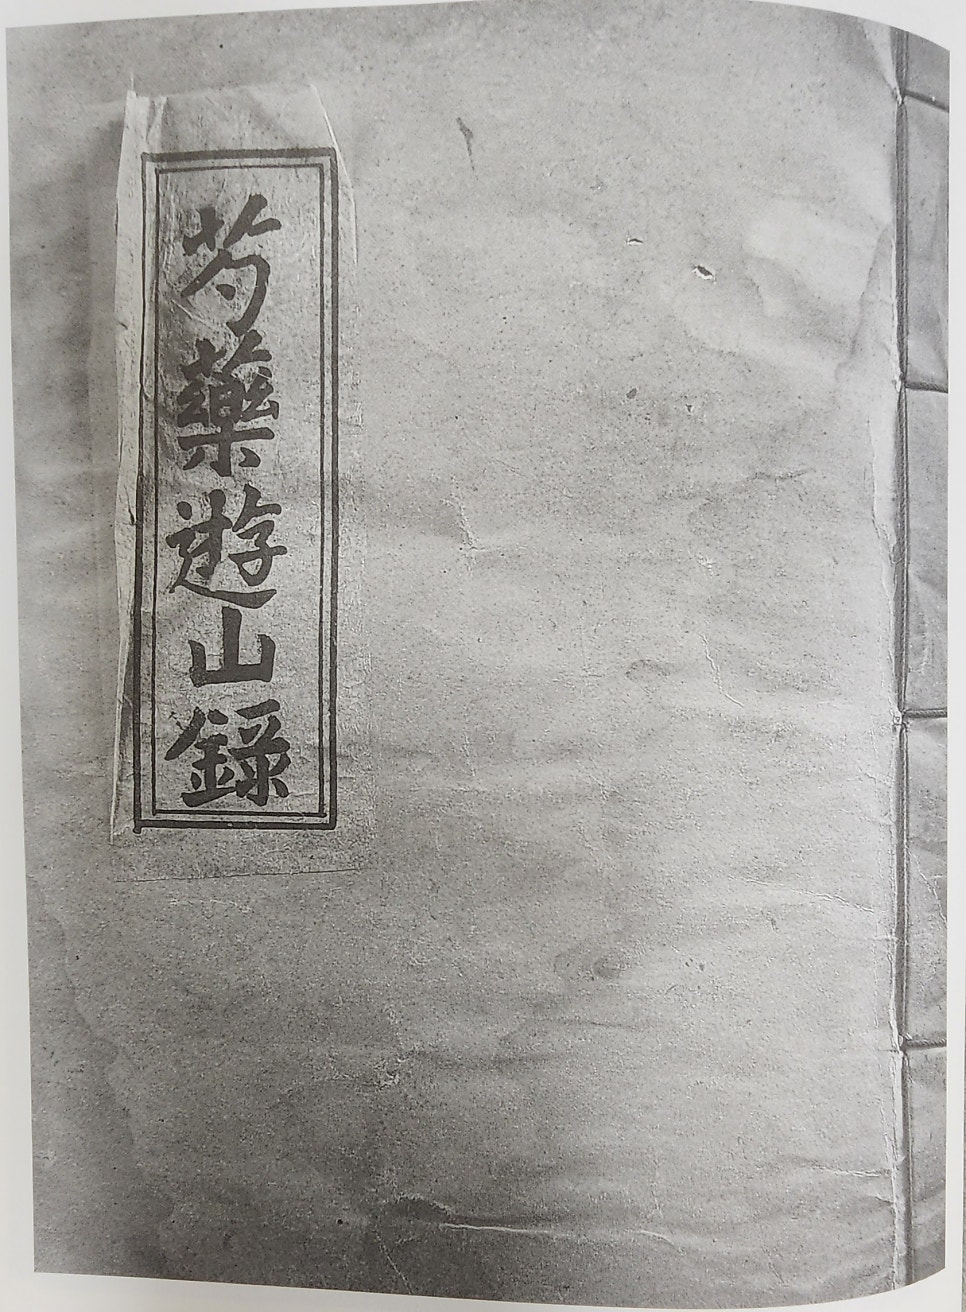 芍藥遊山錄